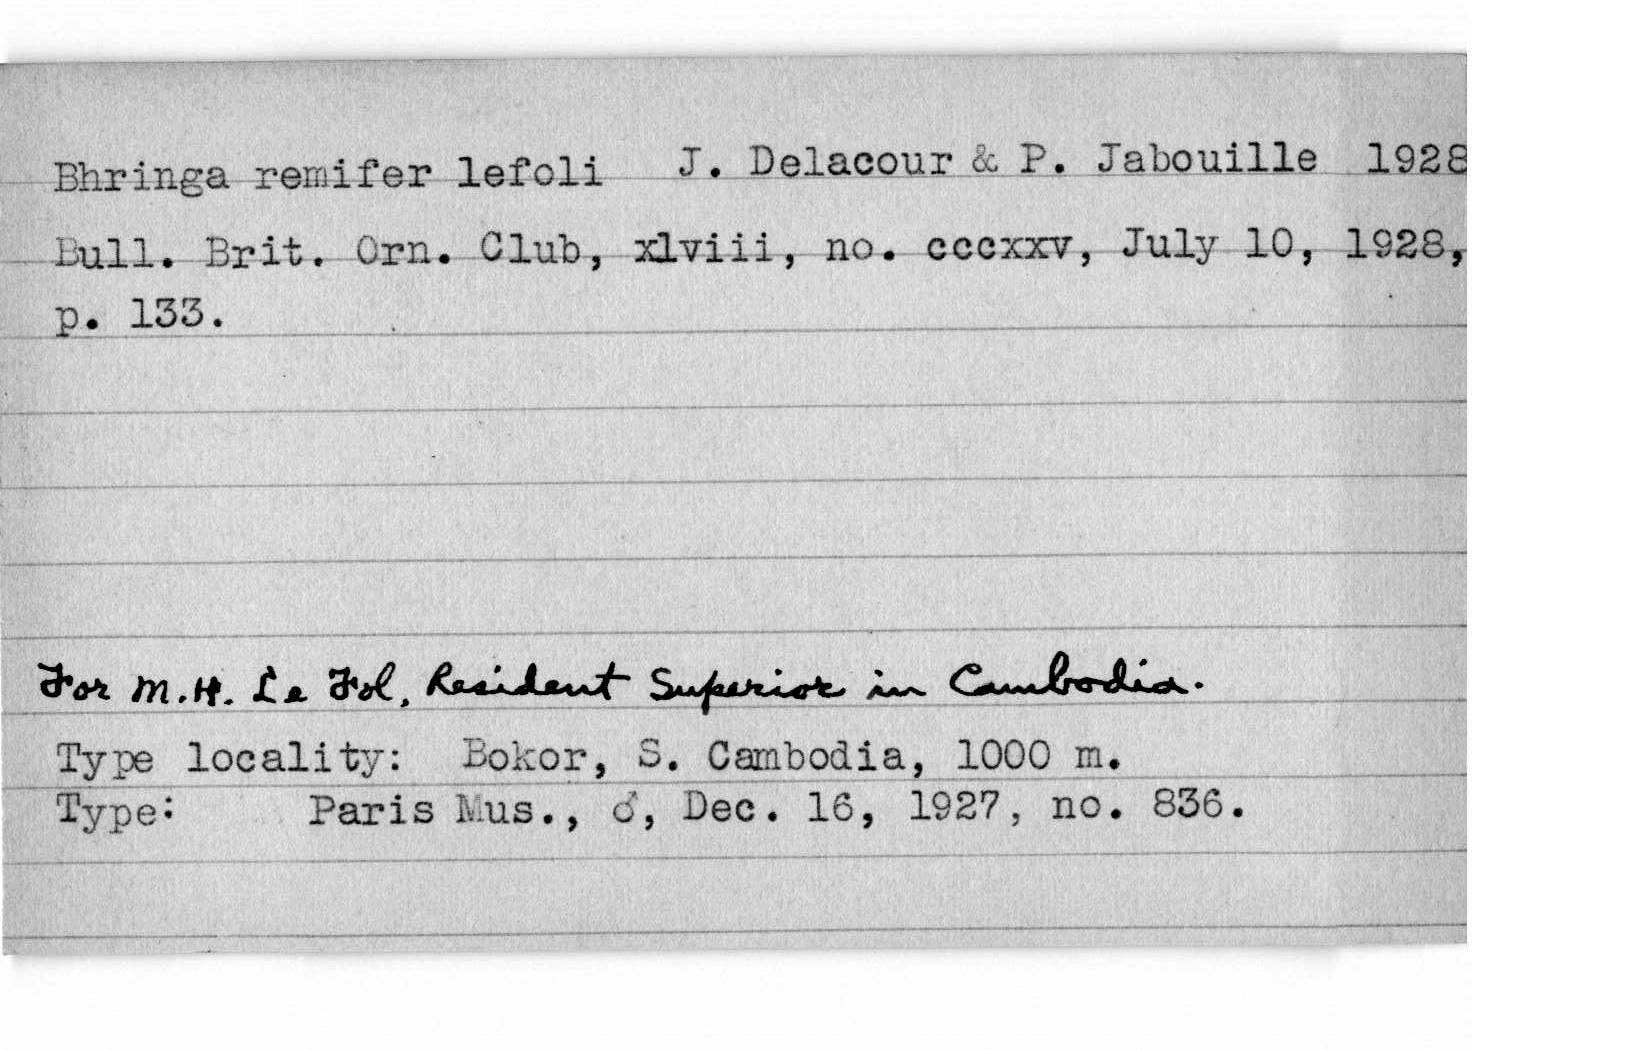 Bhringa remifer lefoli J. Delacour & P. Jabouille 1928
Bull. Brit. Orn. Club, xlviii, no. cccxxv, July 10, 1928,
p. 133.
For M.H. Le Fol, Resident Superior in Cambodia.
Type locality: Bokor, S. Cambodia, 1000 m.
Type: Paris Mus., ♂, Dec. 16, 1927, no. 836.